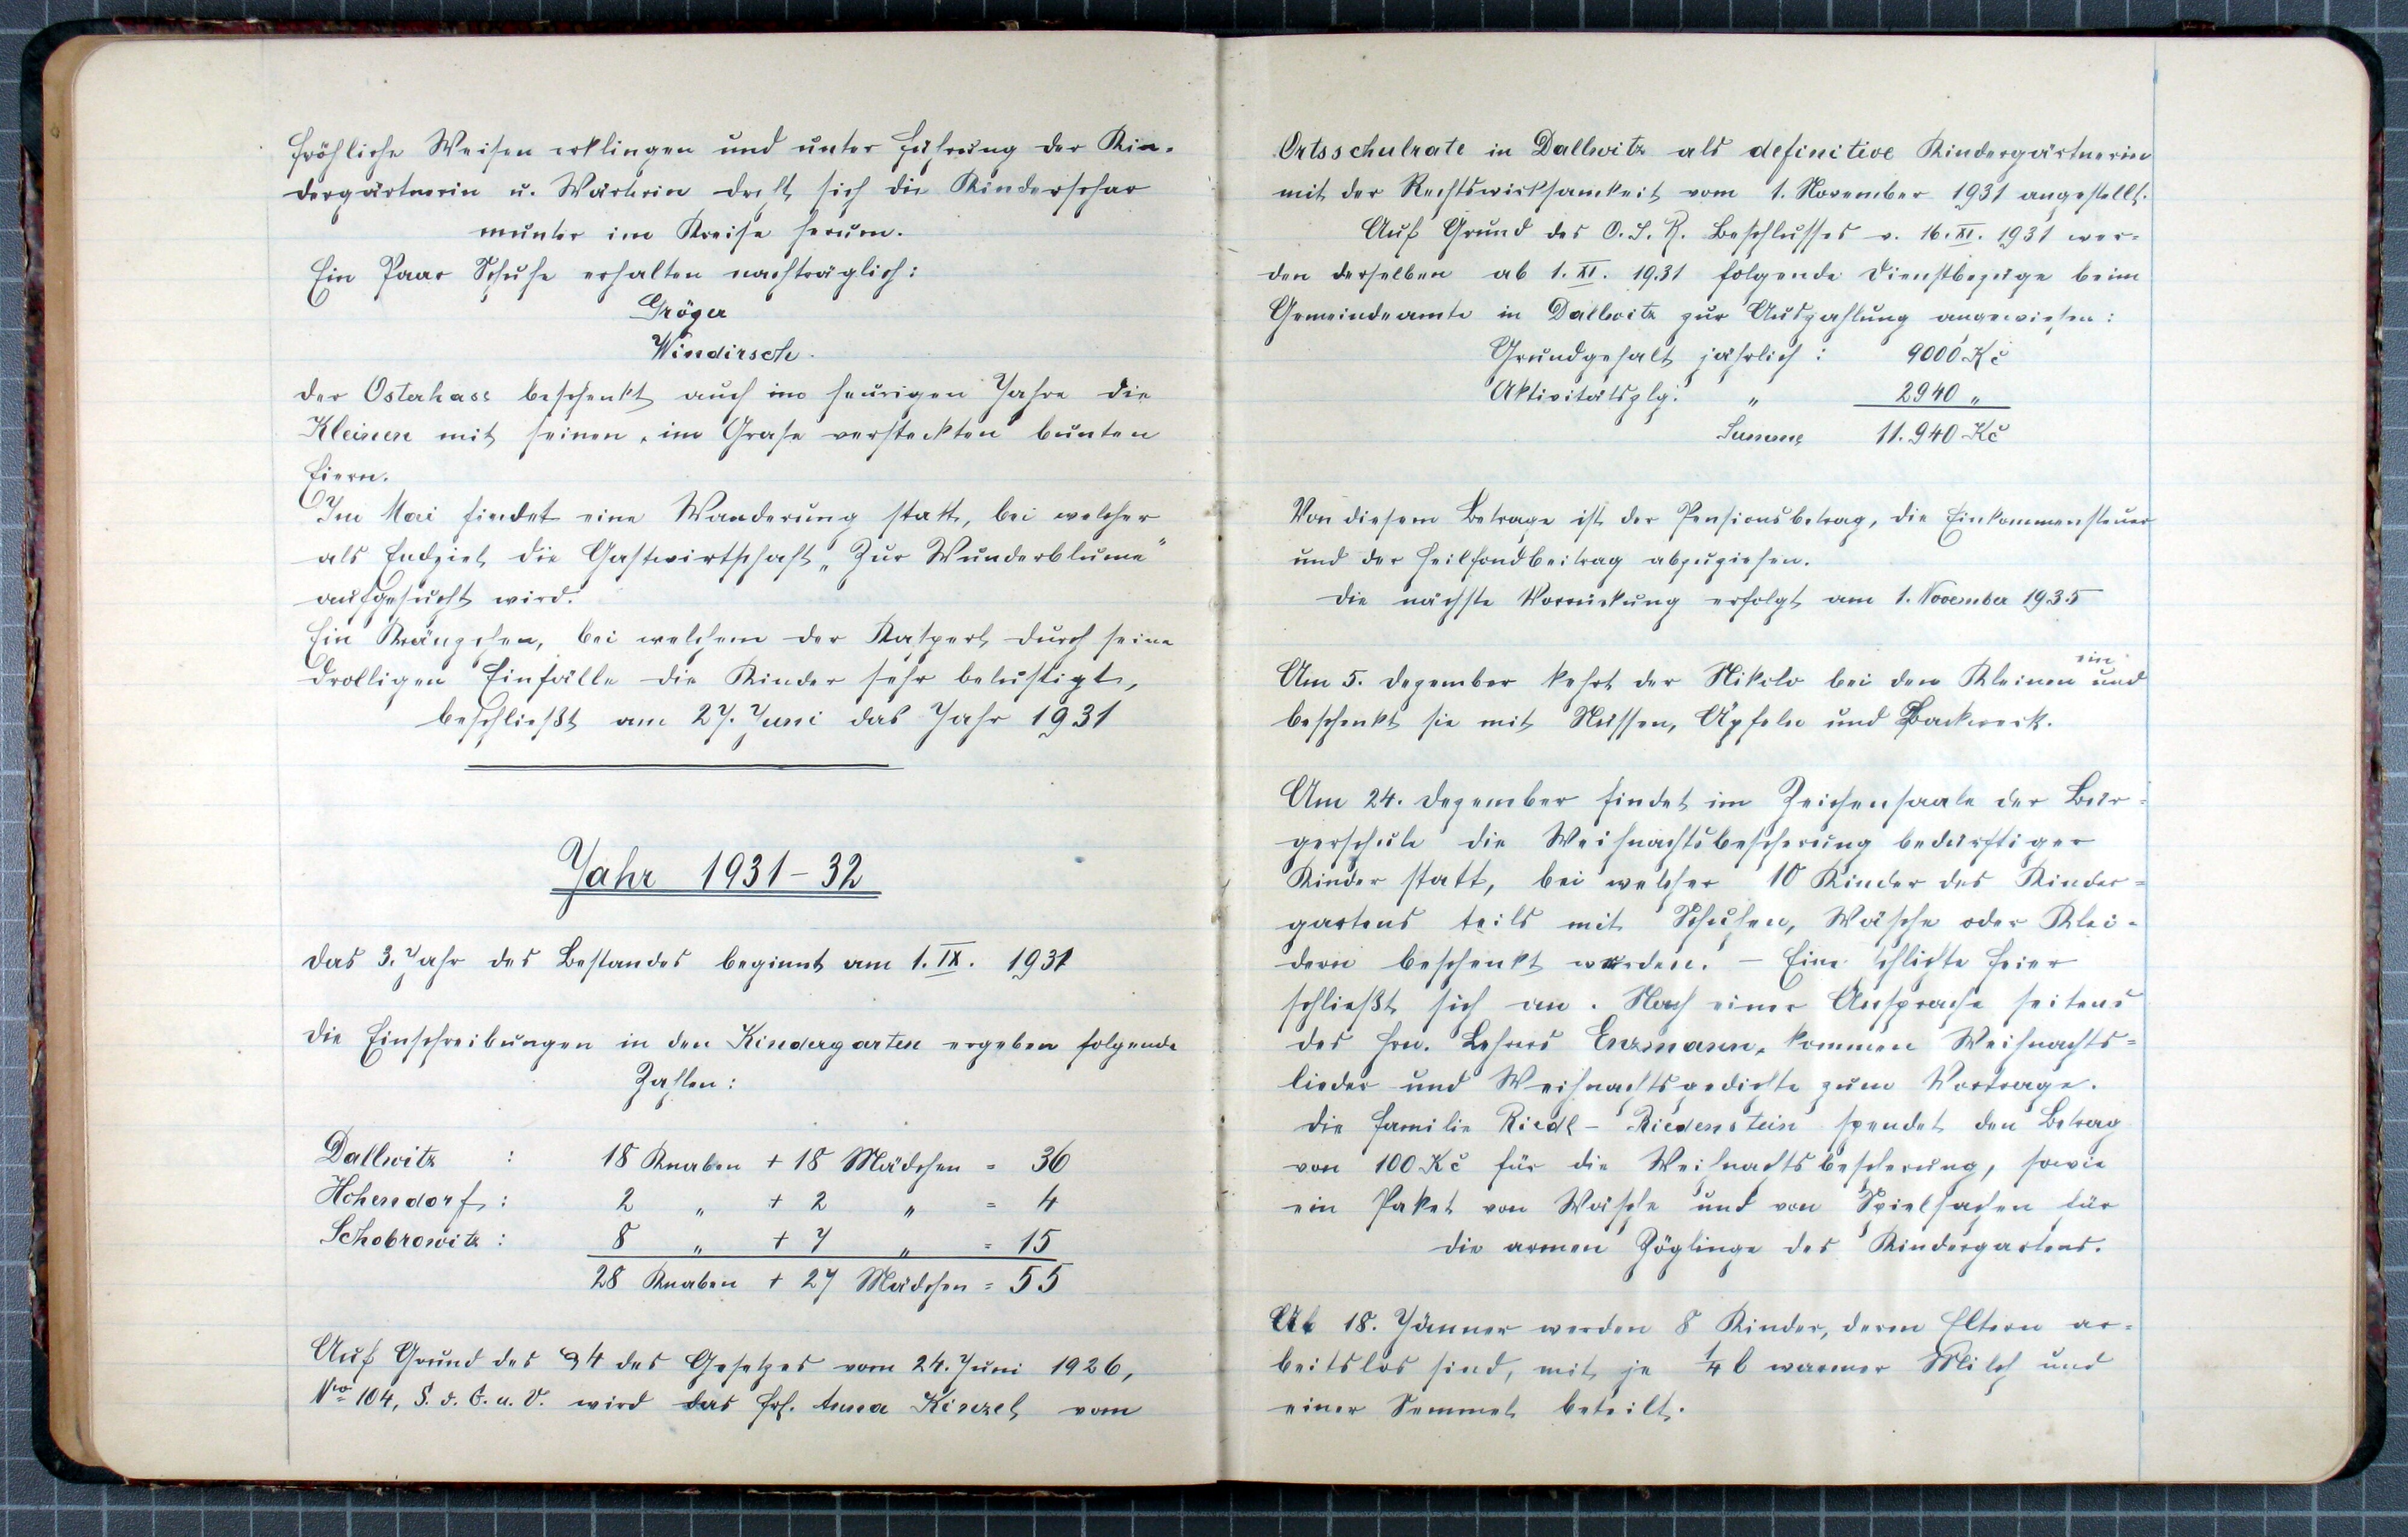 fröhliche Weisen erklingen und unter Führung der Kin-
dergärtnerin u. Wärterin dreht sich die Kinderschar
munter im Kreise herum.
Ein Paar Schuhe erhalten nachträglich:
Gröger
Windirsch.
Der Osterhase beschenkt auch im heurigen Jahre die
Kleinen mit seinen, im Grase versteckten bunten
Eiern.
Im Mai findet eine Wanderung statt, bei welcher
als Endziel die Gastwirtschaft „Zur Wunderblume"
aufgesucht wird.
Ein Kränzchen, bei welchem der Kasperl durch seine
drolligen Einfälle die Kinder sehr belustigt,
beschließt am 27. Juni das Jahr 1931
Jahr 1931-32
Das 3. Jahr des Bestandes beginnt am 1. IX. 1931
Die Einschreibungen in den Kindergarten ergeben folgende
Zahlen:
Dallwitz : 18 Knaben + 18 Mädchen = 36
Hohendorf : 2 „ + 2 „ = 4
Schobrowitz : 8 „ + 7 „ = 15
28 Knaben + 27 Mädchen = 55
Auf Grund des § 4 des Gesetzes vom 24. Juni 1926,
Nro 104, S. d. G. u. V. wird das Frl. Anna Kinzel vom
Ortsschulrate in Dallwitz als definitive Kindergärtnerin
mit der Rechtswirksamkeit vom 1. November 1931 angestellt.
Auf Grund des O. S. R. Beschlusses v. 16. XI. 1931 wer-
den derselben ab 1. XI. 1931 folgende Dienstbezüge beim
Gemeindeamte in Dallwitz zur Auszahlung angewiesen:
Grundgehalt jährlich : 9000 Kč
Aktivitätszlg. „ 2940 „
Summe 11.940 Kč
Von diesem Betrage ist der Pensionsbetrag, die Einkommensteuer
und der Heilfondbeitrag abzuziehen.
Die nächste Vorrückung erfolgt am 1. November 1935
Am 5. Dezember kehrt der Nikolo bei den Kleinen ein und
beschenkt sie mit Nüssen, Äpfeln und Backwerk.
Am 24. Dezember findet im Zeichensaale der Bür-
gerschule die Weihnachtsbescherung bedürftiger
Kinder statt, bei welcher 10 Kinder des Kinder-
gartens teils mit Schuhen, Wäsche oder Klei-
dern beschenkt werden. - Eine schlichte Feier
schließt sich an. Nach einer Ansprache seitens
des Hrn. Lehrers Enzmann, kommen Weihnachts-
lieder und Weihnachtsgedichte zum Vortrage.
Die Familie Riedl-Riedenstein spendet den Betrag
von 100 Kč für die Weihnachtsbescherung, sowie
ein Paket von Wäsche und von Spielsachen für
die armen Zöglinge des Kindergartens.
Ab 18. Jänner werden 8 Kinder, deren Eltern ar-
beitslos sind, mit je 1/4 l warmer Milch und
einer Semmel beteilt.